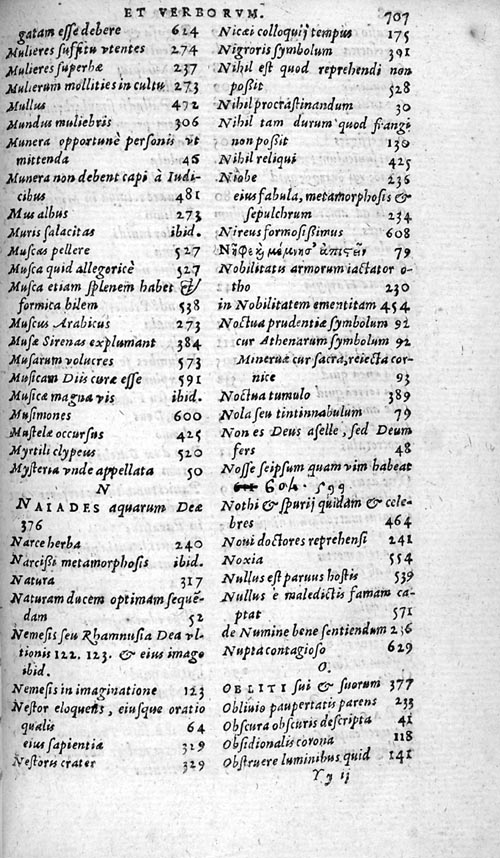 ET VERBORVM. 707
gatam esse debere 624
Mulieres suffitu vtentes 274
Mulieres superbæ 237
Mulierum mollities in cultu 273
Mullus 472
Mundus muliebris 306
Munera opportunè personis vt
mittenda 46
Munera non debent capi à Iudi-
cibus 481
Mus albus 273
Muris salacitas ibid.
Muscas pellere 527
Musca quid allegoricè 527
Musca etiam splenem habet &
formica bilem 538
Muscus Arabicus 273
Musæ Sirenas explumant 384
Musarum volucres 573
Musicam Diis curæ esse 591
Musicæ magna vis ibid.
Musimones 600
Mustelæ occursus 425
Myrtili clypeus 520
Mysteria vnde appellata 50
N
NAIADES aquarum Deæ
376
Narce herba 240
Narcissi metamorphosis ibid.
Natura 317
Naturam ducem optimam sequē-
dam 52
Nemesis seu Rhamnusia Dea vl-
tionis 122. 123. & eius imago
ibid.
Nemesis in imaginatione 123
Nestor eloquens, eiusque oratio
qualis 64
eius sapientia 329
Nestoris crater 329
Nicæi colloquij tempus 175
Nigroris symbolum 391
Nihil est quod reprehendi non
possit 528
Nihil procrastinandum 30
Nihil tam durum quod frangi
non possit 130
Nihil reliqui 425
Niobe 236
eius fabula, metamorphosis &
sepulchrum 234
Nireus formosissimus 608
79
Nobilitatis armorum iactator o-
tho 230
in Nobilitatem ementitam 454
Noctua prudentiæ symbolum 92
cur Athenarum symbolum 92
Mineruæ cur sacra, reiecta cor-
nice 93
Noctua tumulo 389
Nola seu tintinnabulum 79
Non es Deus aselle, sed Deum
fers 48
Nosse seipsum quam vim habeat
604. 599
Nothi & spurij quidam & cele-
bres 464
Noui doctores reprehensi 241
Noxia 554
Nullus est paruus hostis 539
Nullus è maledictis famam ca-
ptat 571
de Numine bene sentiendum 236
Nupta contagioso 629
O.
OBLITI sui & suorum 377
Obliuio paupertatis parens 233
Obscura obscuris descripta 41
Obsidionalis corona 118
Obstruere luminibus quid 141
Yy ij